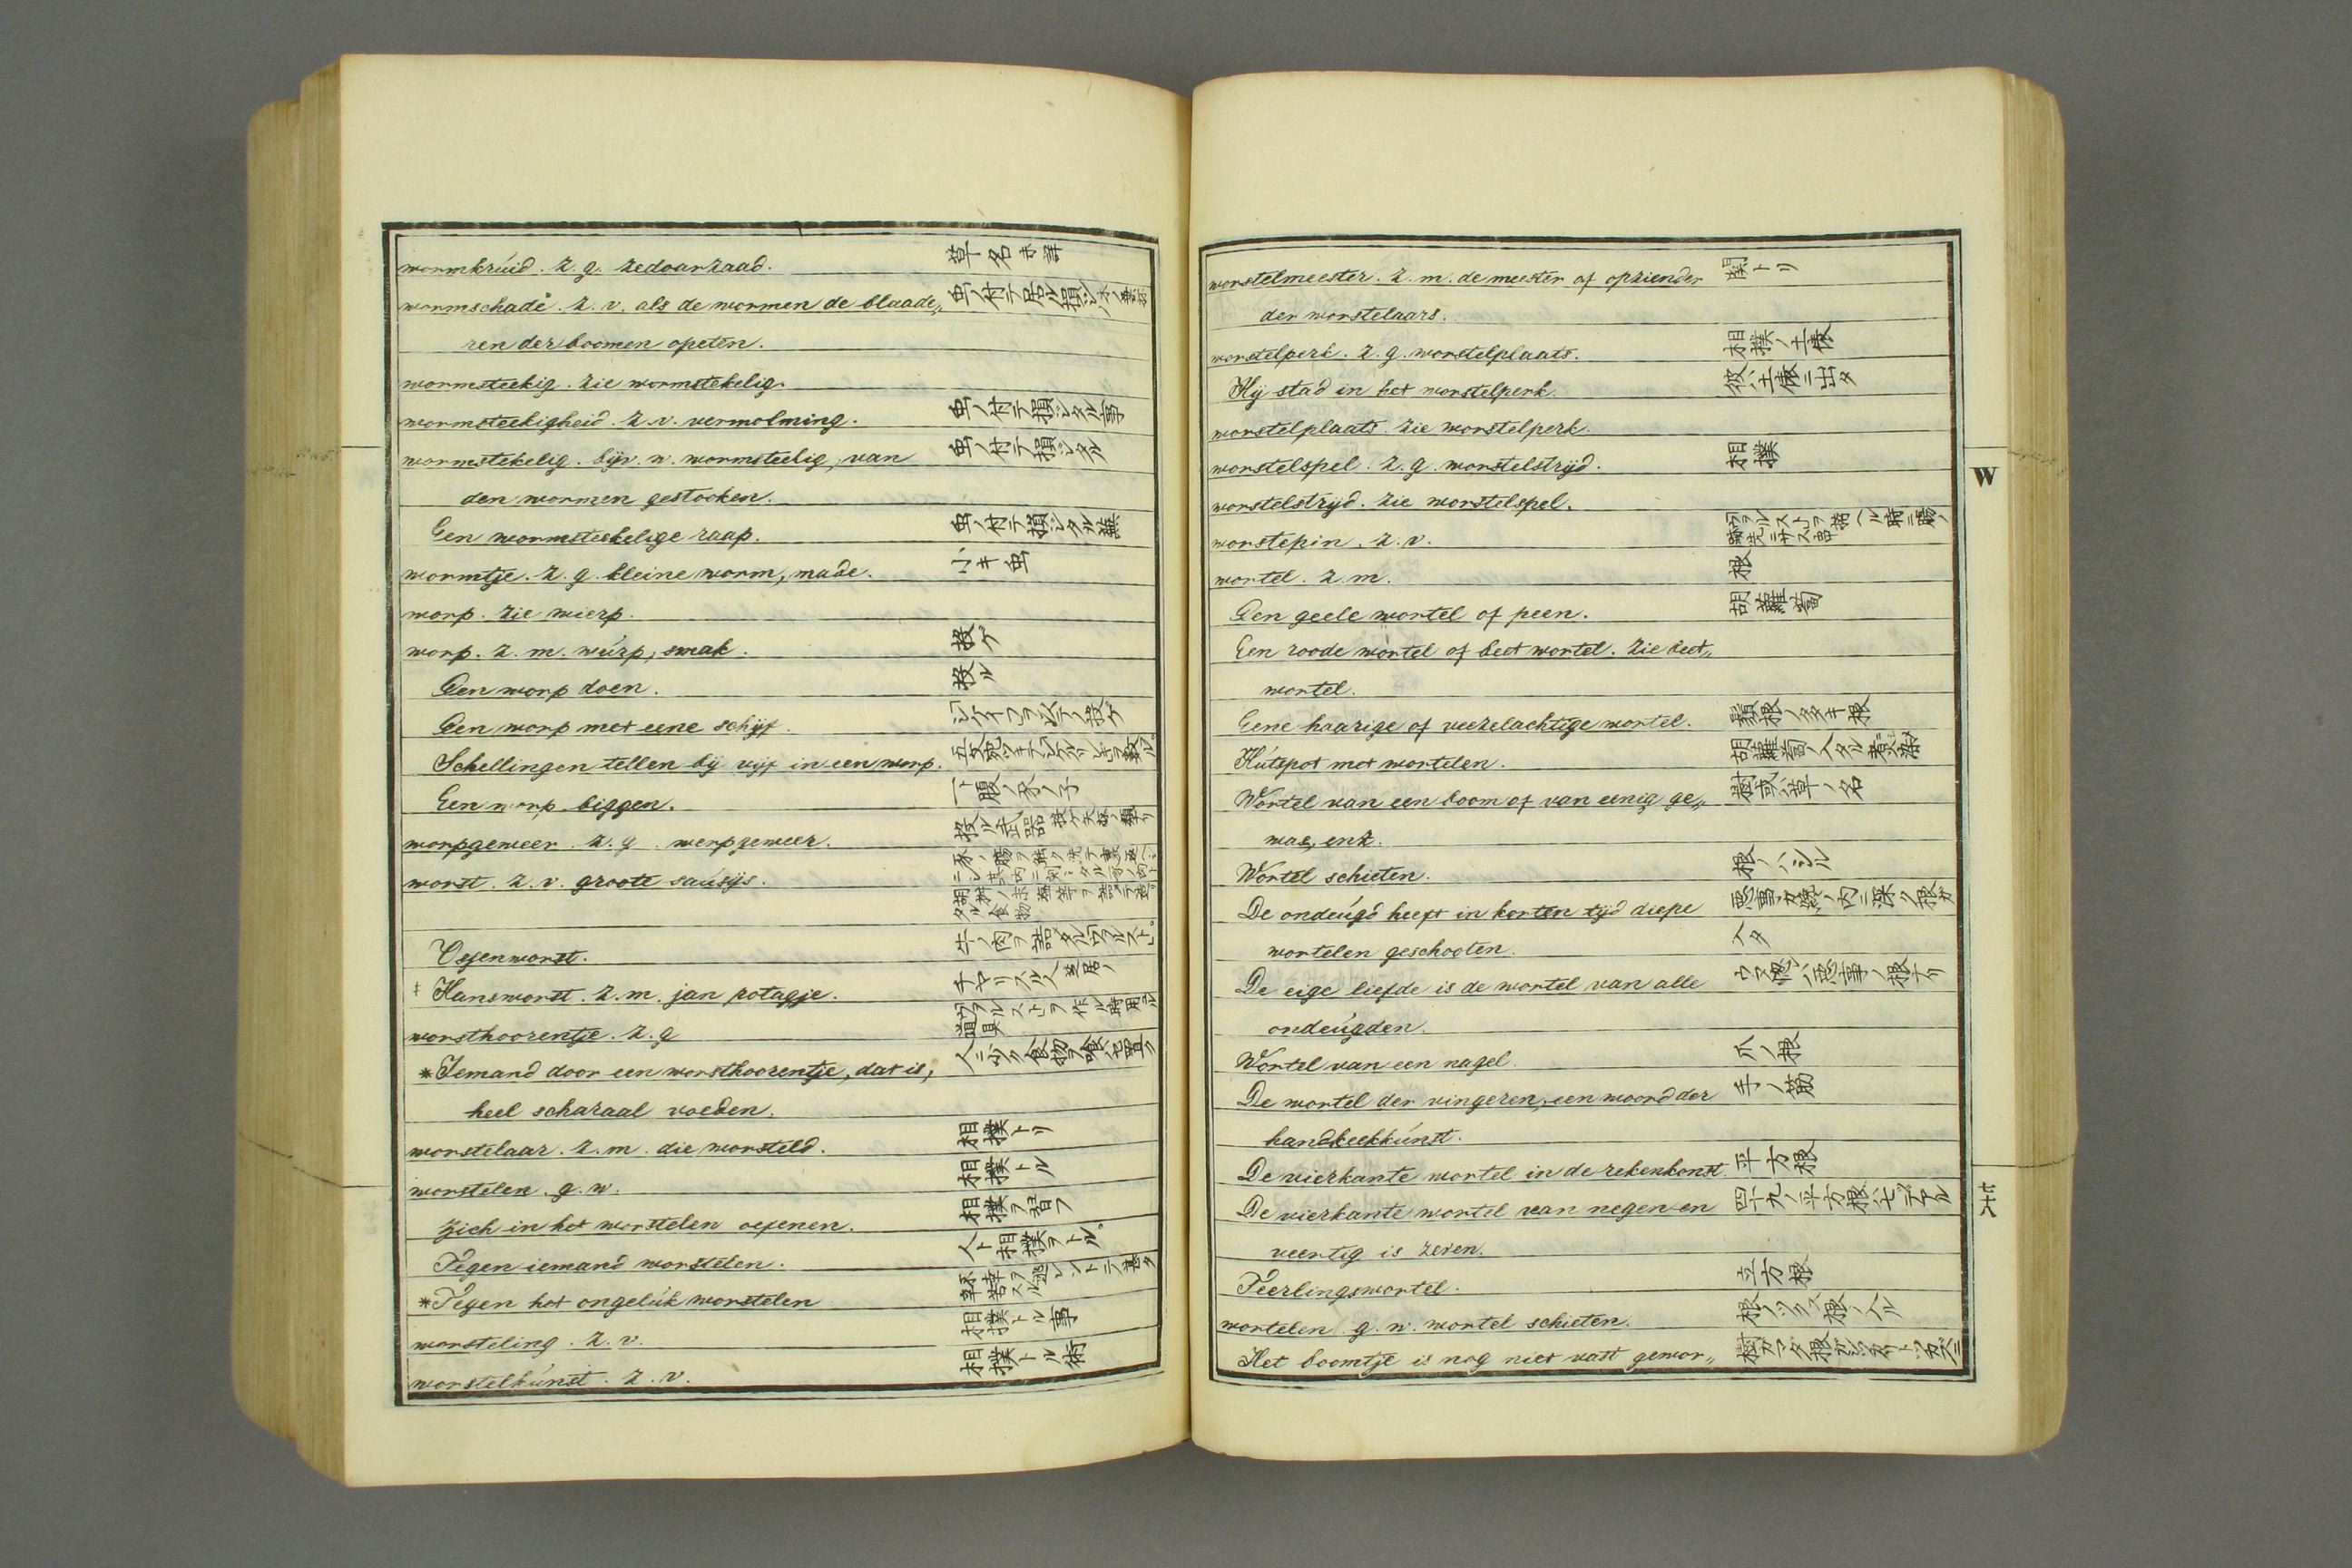 wormkrúid. z. g. zedoarzaad. 草名 未詳
wormschade. z. v. als de wormen de blaade„ 虫ノ付テ居ル損シ
ren der boomen opeten.
wormsteekig. zie wormstekelig.
wormsteekigheid. z. v. vermolming. 虫ノ付テ損シタル事
wormstekelig. bijv. w. wormsteekig, van 虫ノ付テ損シタル
den wormen gestooken.
Een wormsteekelige raap. 虫ノ付テ損シタル蕪
wormtje. z. g. kleine worm, made. 小キ虫
worp. zie wierp.
worp. z. m. wúrp, smak. 投ゲ
Een worp doen. 投ル
Een worp met eene schijf.
Schellingen tellen bij vijf in een worp.
Een worp biggen. 一ト腹ノ豕ノ子
worpgeweer. z. g. werpgeweer. 投ル武器
worst. z. v. groote saúsijs.
Ossenworst.
‡ Hansworst. z. m. jan potagje.
worsthoorentje. z. g
*Iemand door een worsthoorentje, dat is, 人ニ少ク食物ヲ喰セ置ク
heel scharaal voeden.
worstelaar. z. m. die worsteld. 相撲トリ
worstelen. g. w. 相撲トル
Zich in het worstelen oefenen. 相撲ヲ習フ
Tegen iemand worstelen. 人ト相撲ヲトル
*Tegen het ongelúk worstelen
worsteling. z. v. 相撲トル事
worstelkúnst. z. v. 相撲トル術
worstelmeester. z. m. de meester of opziender 関トリ
der worstelaars.
worstelperk. z. g. worstelplaats. 相撲ノ土俵
Hij stad in het worstelperk. 彼ハ土俵ニ出タ
worstelplaats. zie worstelperk.
worstelspel. z. g. worstelstrijd. 相撲
worstelstrijd. zie worstelspel.
worstepin. z. v.
wortel. z. m. 根
Een geele wortel of peen. 胡蘿蔔
Een roode wortel of beet wortel. zie beet„
wortel.
Eene haarige of veezelachtige wortel. 鬚根ノ多キ根
Hútspot met wortelen.
Wortel van een boom of van eenig ge„ 樹或ハ草ノ名
was, enz.
Wortel schieten. 根ノハシル
De ondeúgd heeft in korten tijd diepe
wortelen geschooten.
De eige liefde is de wortel van alle
ondeúgden.
Wortel van een nagel. 爪ノ根
De wortel der vingeren, een woord der 手ノ筋
handkeekkúnst.
De vierkante wortel in de rekenkonst. 平方根
De vierkante wortel van negen en 四十九ノ平方根ハ七デアル
veertig is zeven.
Teerlingswortel. 立方根
wortelen. g. w. wortel schieten.
Het boomtje is nog niet vast gewor„
W